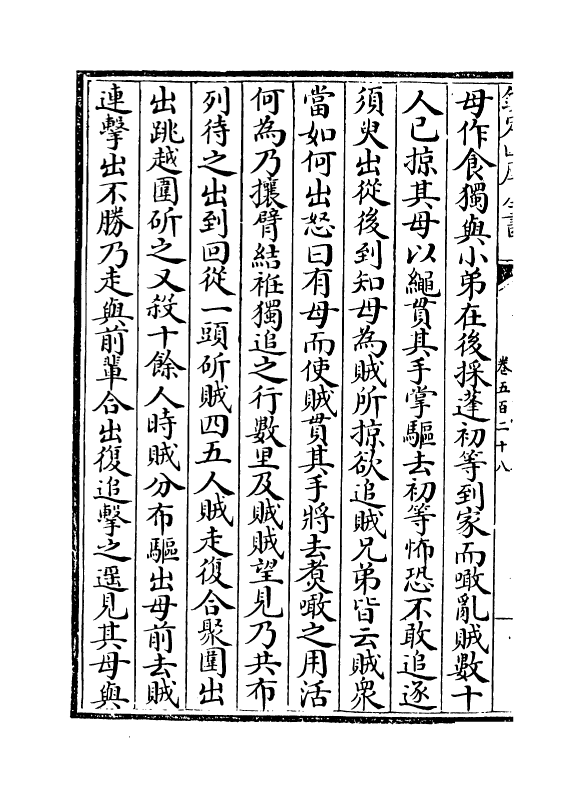 欽定四庫全書
卷五百二十八
母作食獨與小弟在後採蓬初等到家而噉亂賊數十
人已掠其母以繩貫其手掌驅去初等怖恐不敢追逐
須臾出從後到知母為賊所掠欲追賊兄弟皆云賊衆
當如何出怒曰有母而使賊貫其手將去煑噉之用活
何為乃攘臂結袵獨追之行數里及賊賊望見乃共布
列待之出到回從一頭斫賊四五人賊走復合聚圍出
出跳越圍斫之又殺十餘人時賊分布驅出母前去賊
連擊出不勝乃走與前輩合出復追擊之遥見其母與